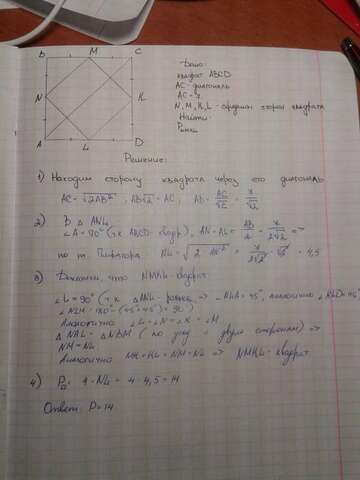 B M C
N K
A L D
Дано:
квадрат ABCD
AC - диагональ
N, M, K, L - середины сторон квадрата
Найти:
Решение:
1) Находим сторону квадрата через его диагональ
AC = √2AB², AB√2 = AC; AB = AC/√2 = x/√2
2) В △ ANL
∠A = 90° (т.к. ABCD - квадр.), AN = AL = AB/2 = x/2√2 =>
по т. Пифагора NL = √2 · = 4,5
3) Докажем, что NMKL - квадрат
∠L = 90° (т.к. △ANL - => = 45°, аналогично ∠KLD = 45°
∠NLM = 180° - (45° + 45°) = 90°)
Аналогично ∠L = ∠N = ∠K = ∠M
△ NAL = △ NBM (по углу и двум сторонам) =>
NM = NL
Аналогично MK = KL = NM = NL => NMKL - квадрат
4) P□ = 4 · NL = 4 · 4,5 = 14
Ответ: P = 14